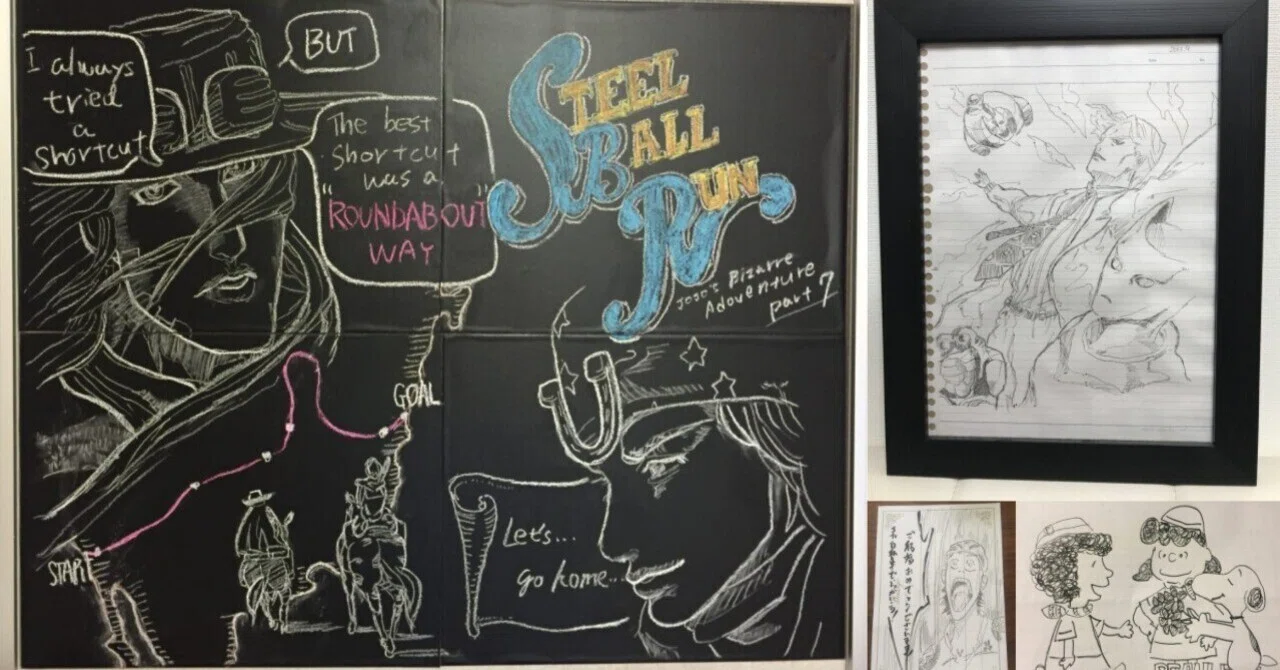 I always
tried
a
shortcut
BUT
The best
shortcut
was a
"ROUNDABOUT"
WAY
STEEL
BALL
RUN
JOJO's Bizarre
Adoventure
part 7
GOAL
START
Let's...
go home...